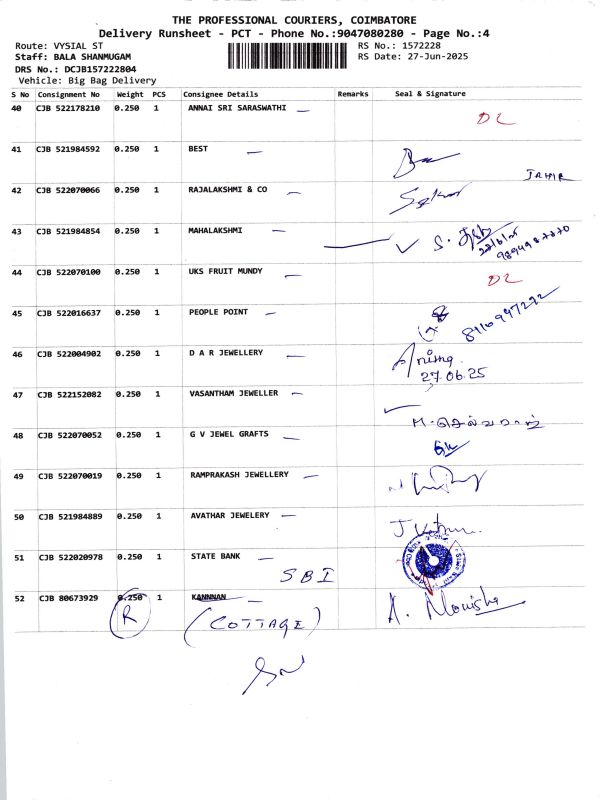 THE PROFESSIONAL COURIERS, COIMBATORE
Delivery Runsheet - PCT - Phone No.:9047080280 - Page No.:4
Route: VYSIAL ST RS No.: 1572228
Staff: BALA SHANMUGAM RS Date: 27-Jun-2025
DRS No.: DCJB157222804
Vehicle: Big Bag Delivery
S No Consignment No Weight PCS Consignee Details Remarks Seal & Signature
40 CJB 522178210 0.250 1 ANNAI SRI SARASWATHI — DL
41 CJB 521984592 0.250 1 BEST —
42 CJB 522070066 0.250 1 RAJALAKSHMI & CO —
43 CJB 521984854 0.250 1 MAHALAKSHMI — ✓ S.
44 CJB 522070100 0.250 1 UKS FRUIT MUNDY — DL
45 CJB 522016637 0.250 1 PEOPLE POINT — 8110997292
46 CJB 522004902 0.250 1 D A R JEWELLERY —
27.06.25
47 CJB 522152082 0.250 1 VASANTHAM JEWELLER —
48 CJB 522070052 0.250 1 G V JEWEL GRAFTS —
49 CJB 522070019 0.250 1 RAMPRAKASH JEWELLERY —
50 CJB 521984889 0.250 1 AVATHAR JEWELERY —
51 CJB 522020978 0.250 1 STATE BANK —
SBI
52 CJB 80673929 0.250 1 KANNNAN — A. Monisha
R (COTTAGE)